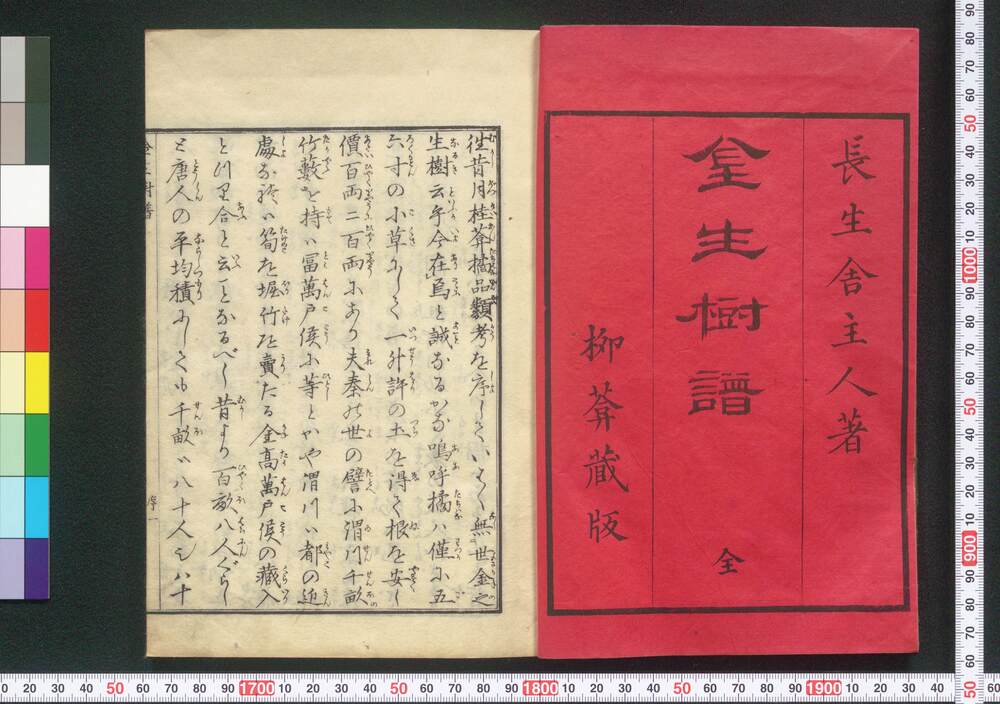 長生舎主人著
金生樹譜
全
柳葊蔵版
徃昔月桂葊橘品類考を序していはく無世金之
生樹云乎今在焉と誠なるかな嗚呼橘ハ僅に五
六寸の小草にして一升許の土を得て根を安し
價百両二百両にあり夫秦の世の譬に渭川千畝
竹藪を持ハ冨萬戸侯に等とかや渭川ハ都の近
處なれハ筍を堀竹を賣たる金高萬戸侯の藏入
とつり合と云ことなるべし昔より百畝八人ぐらし
と唐人の平均積にしても千畝ハ八十人也八十
序一